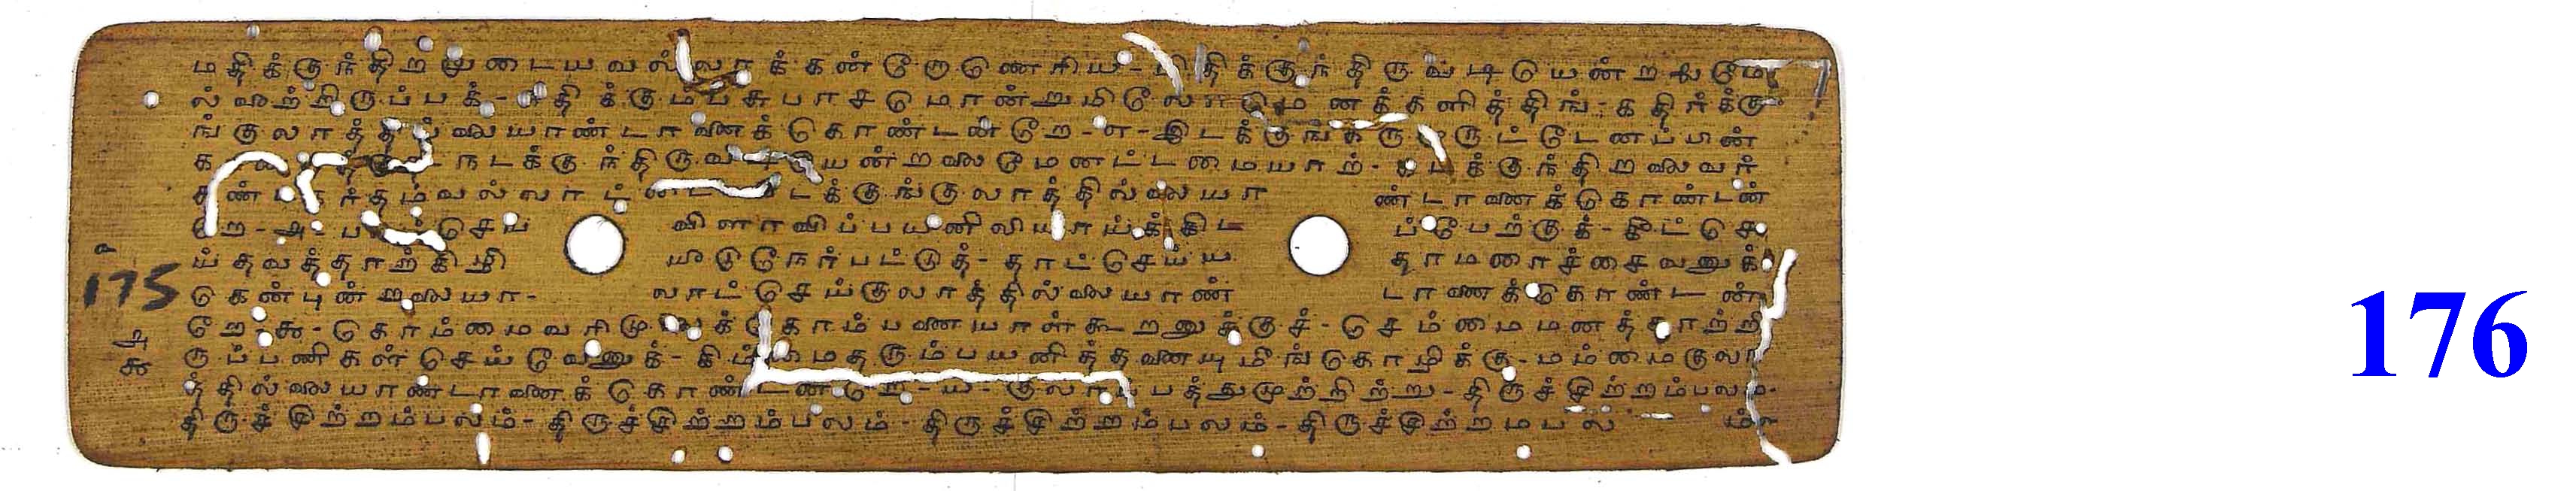 மதிக்குந்திறலுடையவல்லரக்கன்றோணெரிய-மிதிக்குந்திருவடியென்றலைமே
ல்வைற்றிருப்பக்-கதிக்கும்பசுபாசமொன்றுமிலோமெனக்களித்திங்-கதிர்க்கு
ங்குலாத்தில்லையாண்டானைக்கொண்டன்றே-எ-இடக்குங்கருமுருட்டேனப்பின்
நடக்குந்திருவடியென்றலைமேனட்டமையாற்-கடக்குந்திறலைவர்
கண்டகர்தம்வல்லாட்டை டக்குங்குலாத்தில்லையா ண்டானைக்கொண்டன்
றே-அ-பாழ்செய் விளாவிப்பயனிலியாய்க்கிட ப்பேற்குக்-கீட்செ
ய்தவத்தாற்கிழி யீடுநேர்பட்டுத்-தாட்செய்ய தாமரைச்சைவனுக்
கென்புன்றலையா- லாட்செய்குலாத்தில்லையாண் டானைக்கொண்டன்
றே-கூ-கொம்மைவரிமுலைக்கொம்பனையாள்கூறனுக்குச்-செம்மைமனத்தாற்றி
ருப்பணிகள்செய்வேனுக்-கிம்மைதரும்பயனித்தனையுமீங்கொழிக்கு-மம்மைகுலா
த்தில்லையாண்டானைக்கொண்டன்றே-ய-குலாப்பத்துமுற்றிற்று-திருச்சிற்றம்பலம்-
திருச்சிற்றம்பலம்-திருச்சிற்றம்பலம்-திருச்சிற்றம்பலம்-திருச்சிற்றமபல ம்
175
அ
கூ
176